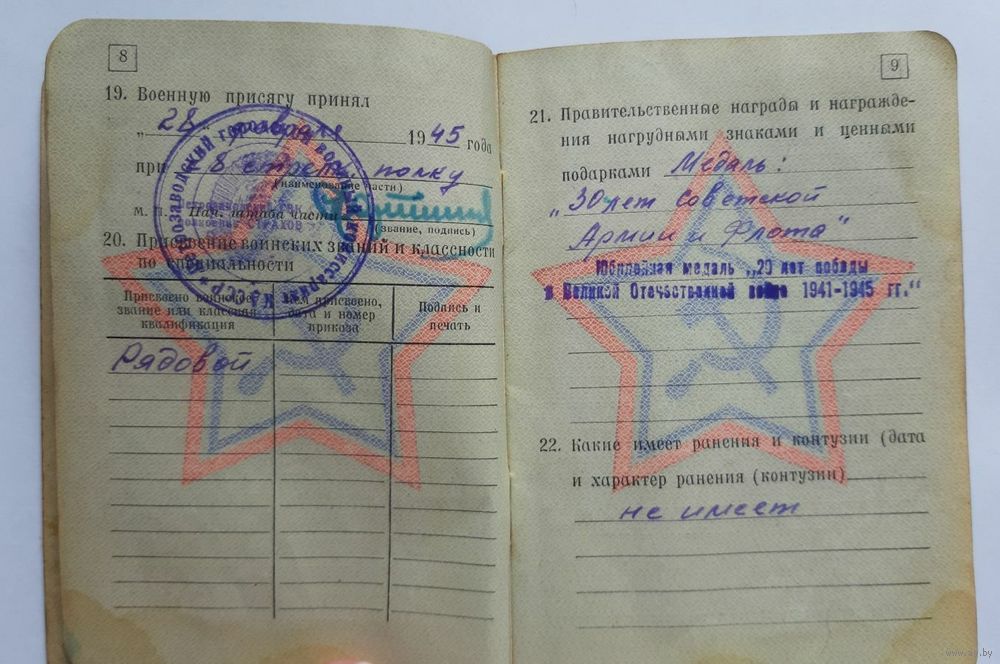 8
19. Военную присягу принял
„ 28 " января 1945 года
при 8 стрелк. полку
(наименование части)
М. П. Нач. штаба части
(звание, подпись)
20. Присвоение воинских званий и классности
по специальности
Присвоено воинское
звание или классная
квалификация
Кем присвоено,
дата и номер
приказа
Подпись и
печать
Рядовой
СТРАХОВ
9
21. Правительственные награды и награжде-
ния нагрудными знаками и ценными
подарками Медаль:
„30 лет Советской
Армии и Флота"
Юбилейная медаль „20 лет победы
в Великой Отечественной войне 1941-1945 гг."
22. Какие имеет ранения и контузии (дата
и характер ранения (контузии)
не имеет
www.ay.by